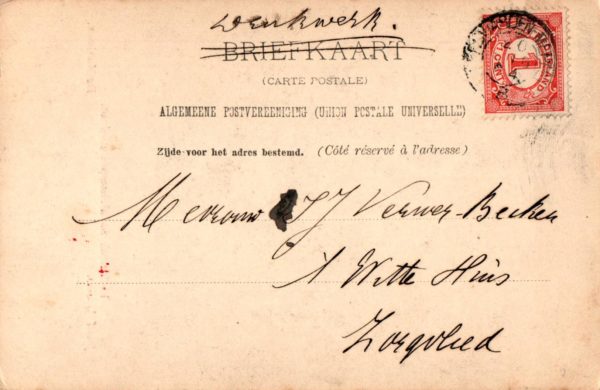 Drukwerk.
BRIEFKAART
(CARTE POSTALE)
ALGEMEENE POSTVEREENIGING (UNION POSTALE UNIVERSELLE)
Zijde voor het adres bestemd. (Côté réservé à l'adresse)
Mevrouw J J Verwer-Becker
't Witte Huis
Zorgvlied
1